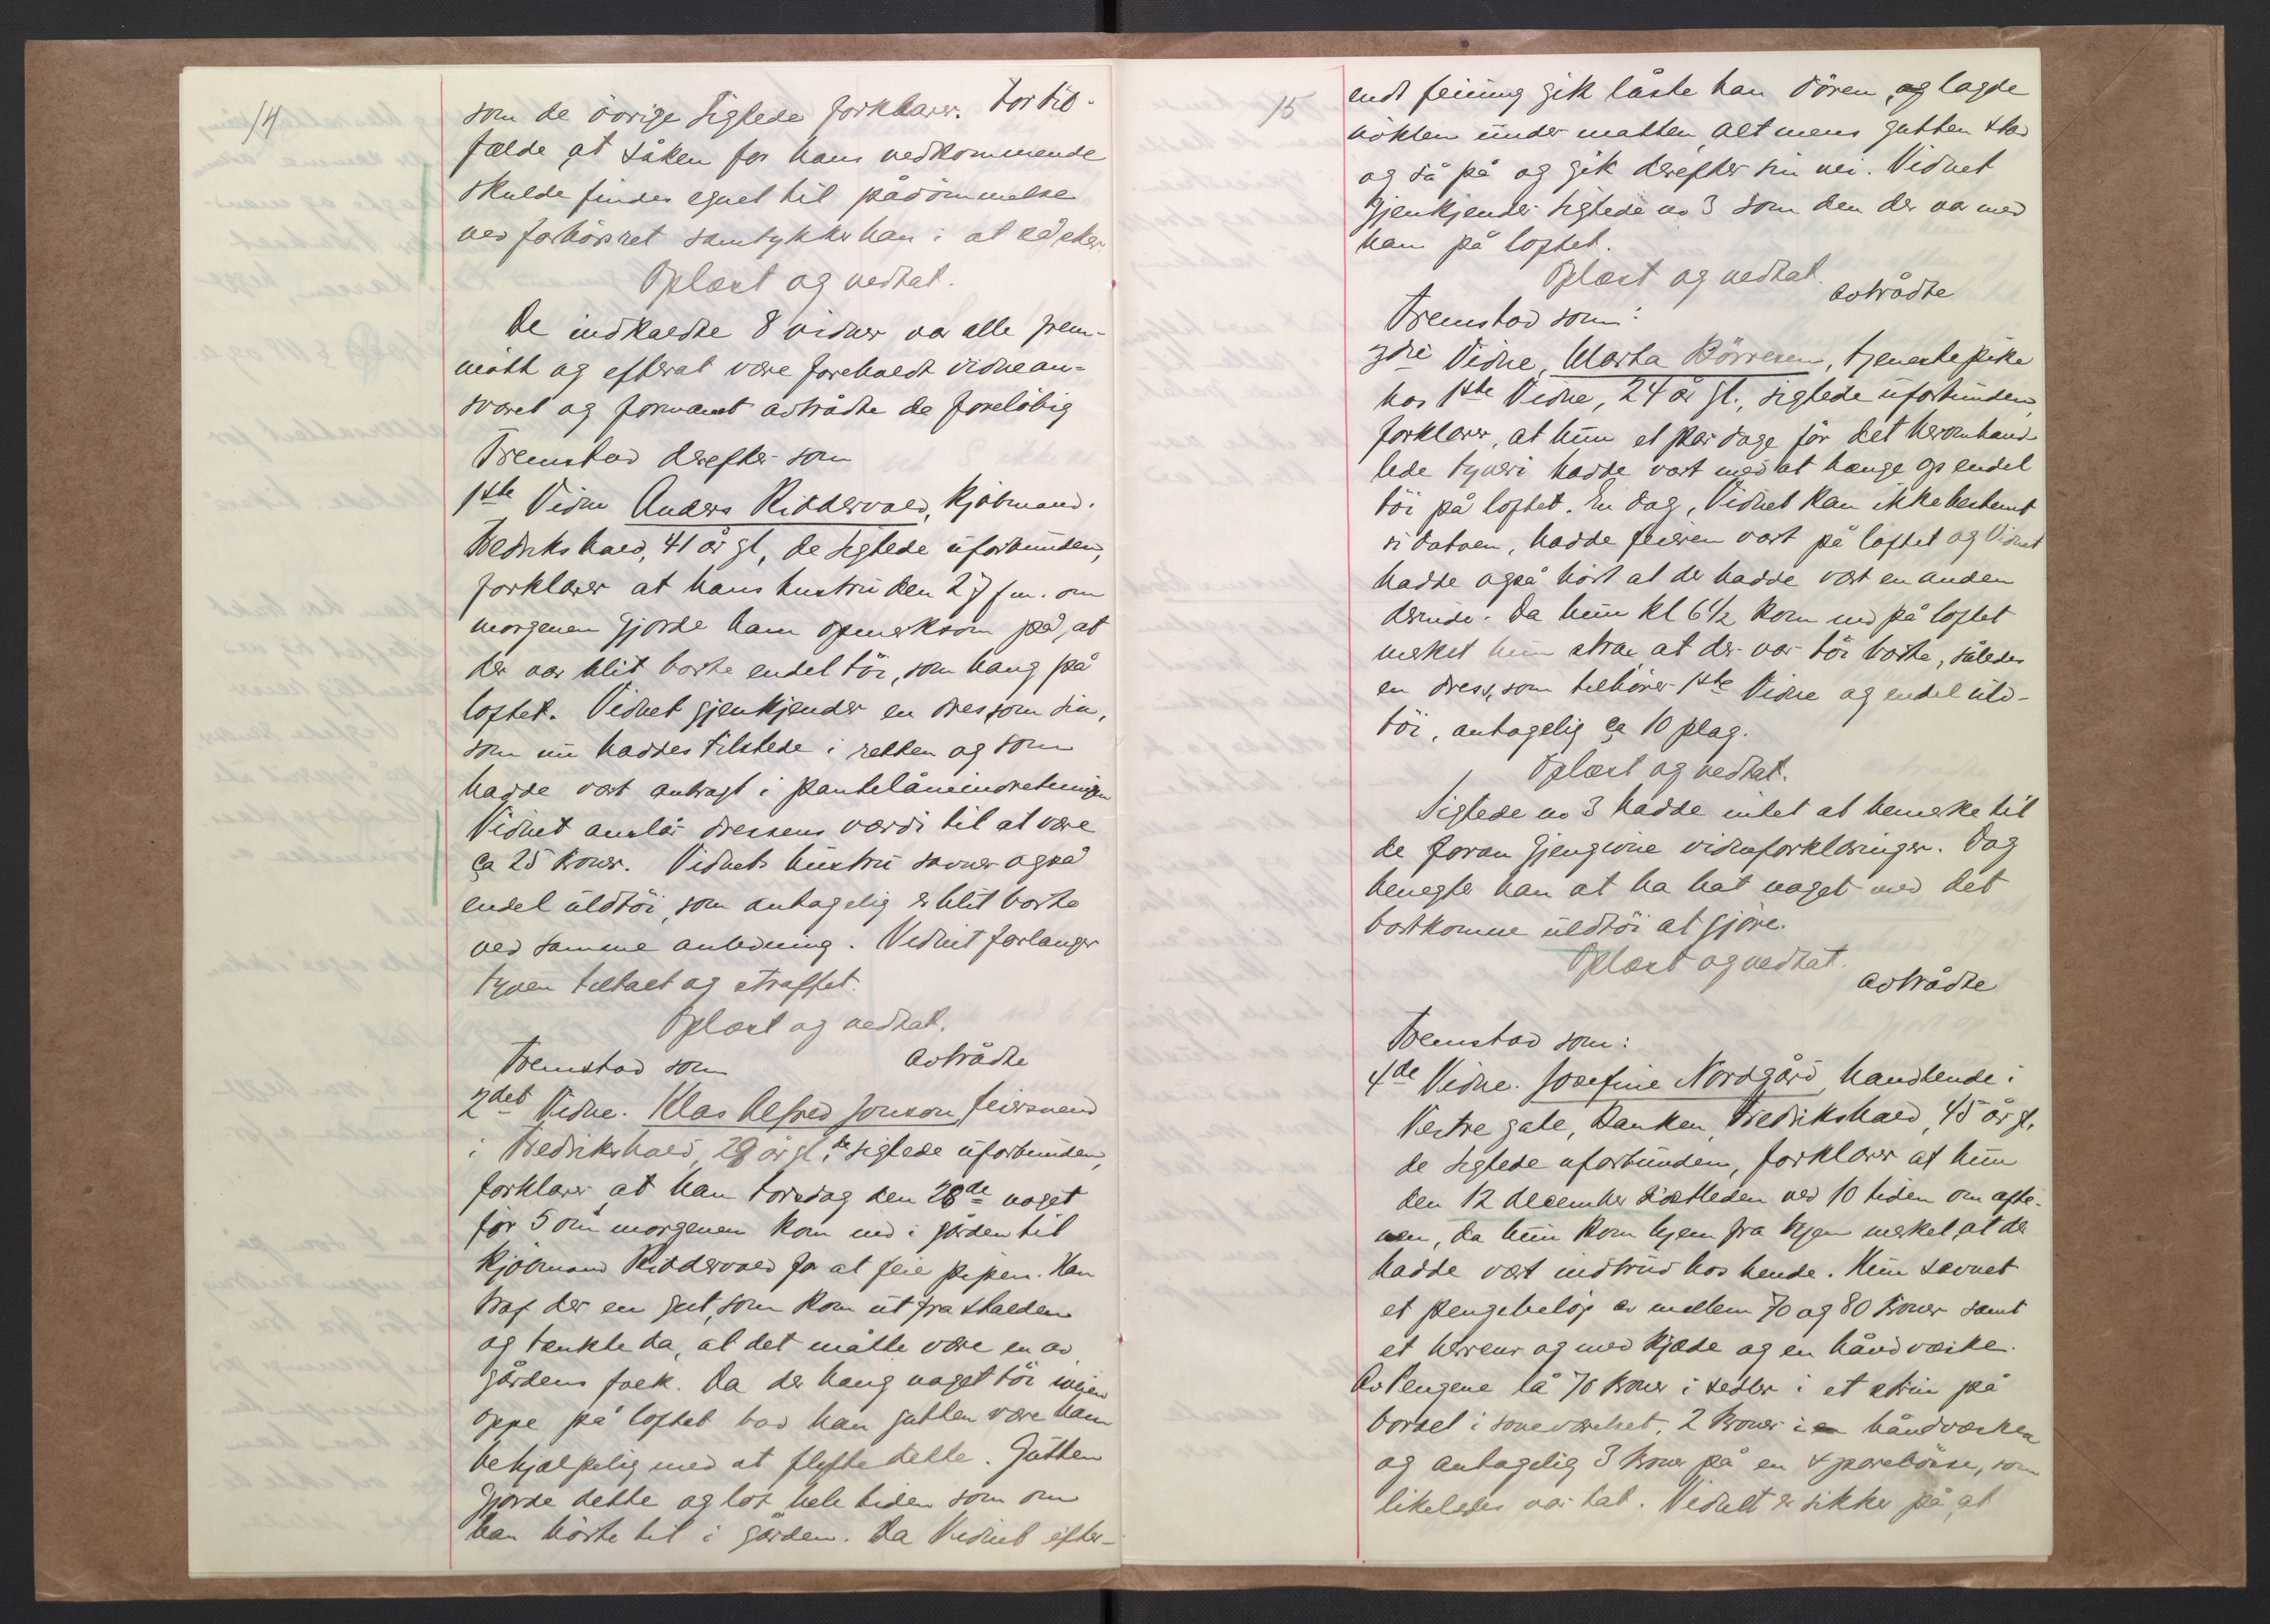 14
som de övrige sigtede forklarer. For til-
fælde, at saken for hans vedkommende
skulde findes egnet til pådömmelse
ved forhörsret samtykker han i at så sker.
Oplæst og vedtat.
De indkaldte 8 vidner var alle frem-
mött og efterat være foreholdt vidnean-
svaret og formant avtrådte de foreløbig
Fremstod derefter som
1ste Vidne Anders Riddervold, kjöbmand.
Fredrikshald, 41 år gl, de sigtede uforbunden,
forklarer at hans hustru den 27 f.m. om
morgenen gjorde ham opmerksom på, at
der var blit borte endel töi, som hang på
loftet. Vidnet gjenkjender en dres som sin,
som nu haddes tilstede i retten og som
hadde vært antragt i pantelåneindretningen
Vidnet anslår dressens værdi til at være
ca 25 kroner. Vidnets hustru savner også
endel uldtöi, som antagelig er blit borte
ved samme anledning. Vidnet forlanger
tyven tiltalt og straffet.
Oplæst og vedtat.
Fremstod som avtrådte
2det Vidne. Klas Alfred Jonson, feiersvend
i Fredrikshald, 28 år gl. de sigtede uforbunden,
forklarer, at han torsdag den 28de noget
för 5 om morgenen kom ind i gården til
kjöbmand Riddervold for at feie pipen. Han
traf der en gut, som kom ut fra stalden
og tænkte da, at det måtte være en av
gårdens folk. Da der hang noget töi
oppe på loftet bad han gutten være ham
behjælpelig med at flytte dette. Gutten
gjorde dette og lot hele tiden som om
han hörte til i gården. Da Vidnet efter-
15
endt feiing gik låste han dören, og lagde
nöklen under matten, alt mens gutten stod
og så på og gik derefter sin vei. Vidnet
gjenkjender sigtede no 3 som den der var med
ham på loftet.
Oplæst og vedtat.
avtrådte
Fremstod som:
3die Vidne, Marta Börresen, tjenestepike
hos 1ste Vidne, 24 år gl., sigtede uforbunden,
forklarer, at hun et par dage för det heromhand-
lede tyveri hadde vært med at hænge op endel
töi på loftet. En dag, Vidnet kan ikke bestemt
si datoen, hadde feieren vært på loftet og Vidnet
hadde også hört at der hadde vært en anden
derinde. Da hun kl 6½ kom ind på loftet
merket hun strax at der var töi borte, således
en dress, som tilhörer 1ste Vidne og endel uld-
töi, antagelig ca 10 plag.
Oplæst og vedtat.
Sigtede no 3 hadde intet at bemerke til
de foran gjengivne vidneforklaringer. Dog
benegter han at ha hat noget med det
bortkomne uldtöi at gjöre.
Oplæst og vedtat.
avtrådte
Fremstod som:
4de Vidne. Josefine Nordgård, handlende i
Vestre gate, Banken, Fredrikshald, 45 år gl.
de sigtede uforbunden, forklarer at hun
den 12 december sistleden ved 10 tiden om afte-
nen, da hun kom hjem fra byen merket, at der
hadde vært indbrud hos hende. Hun savnet
et pengebelöp av mellem 70 og 80 kroner samt
et herreur og med kjæde og en håndvæske.
Av Pengene lå 70 kroner i sedler i et skrin på
bordet i soveværelset, 2 kroner i håndvæsken
og antagelig 3 kroner på en sparebösse, som
likeledes var tat. Vidnet er sikker på, at